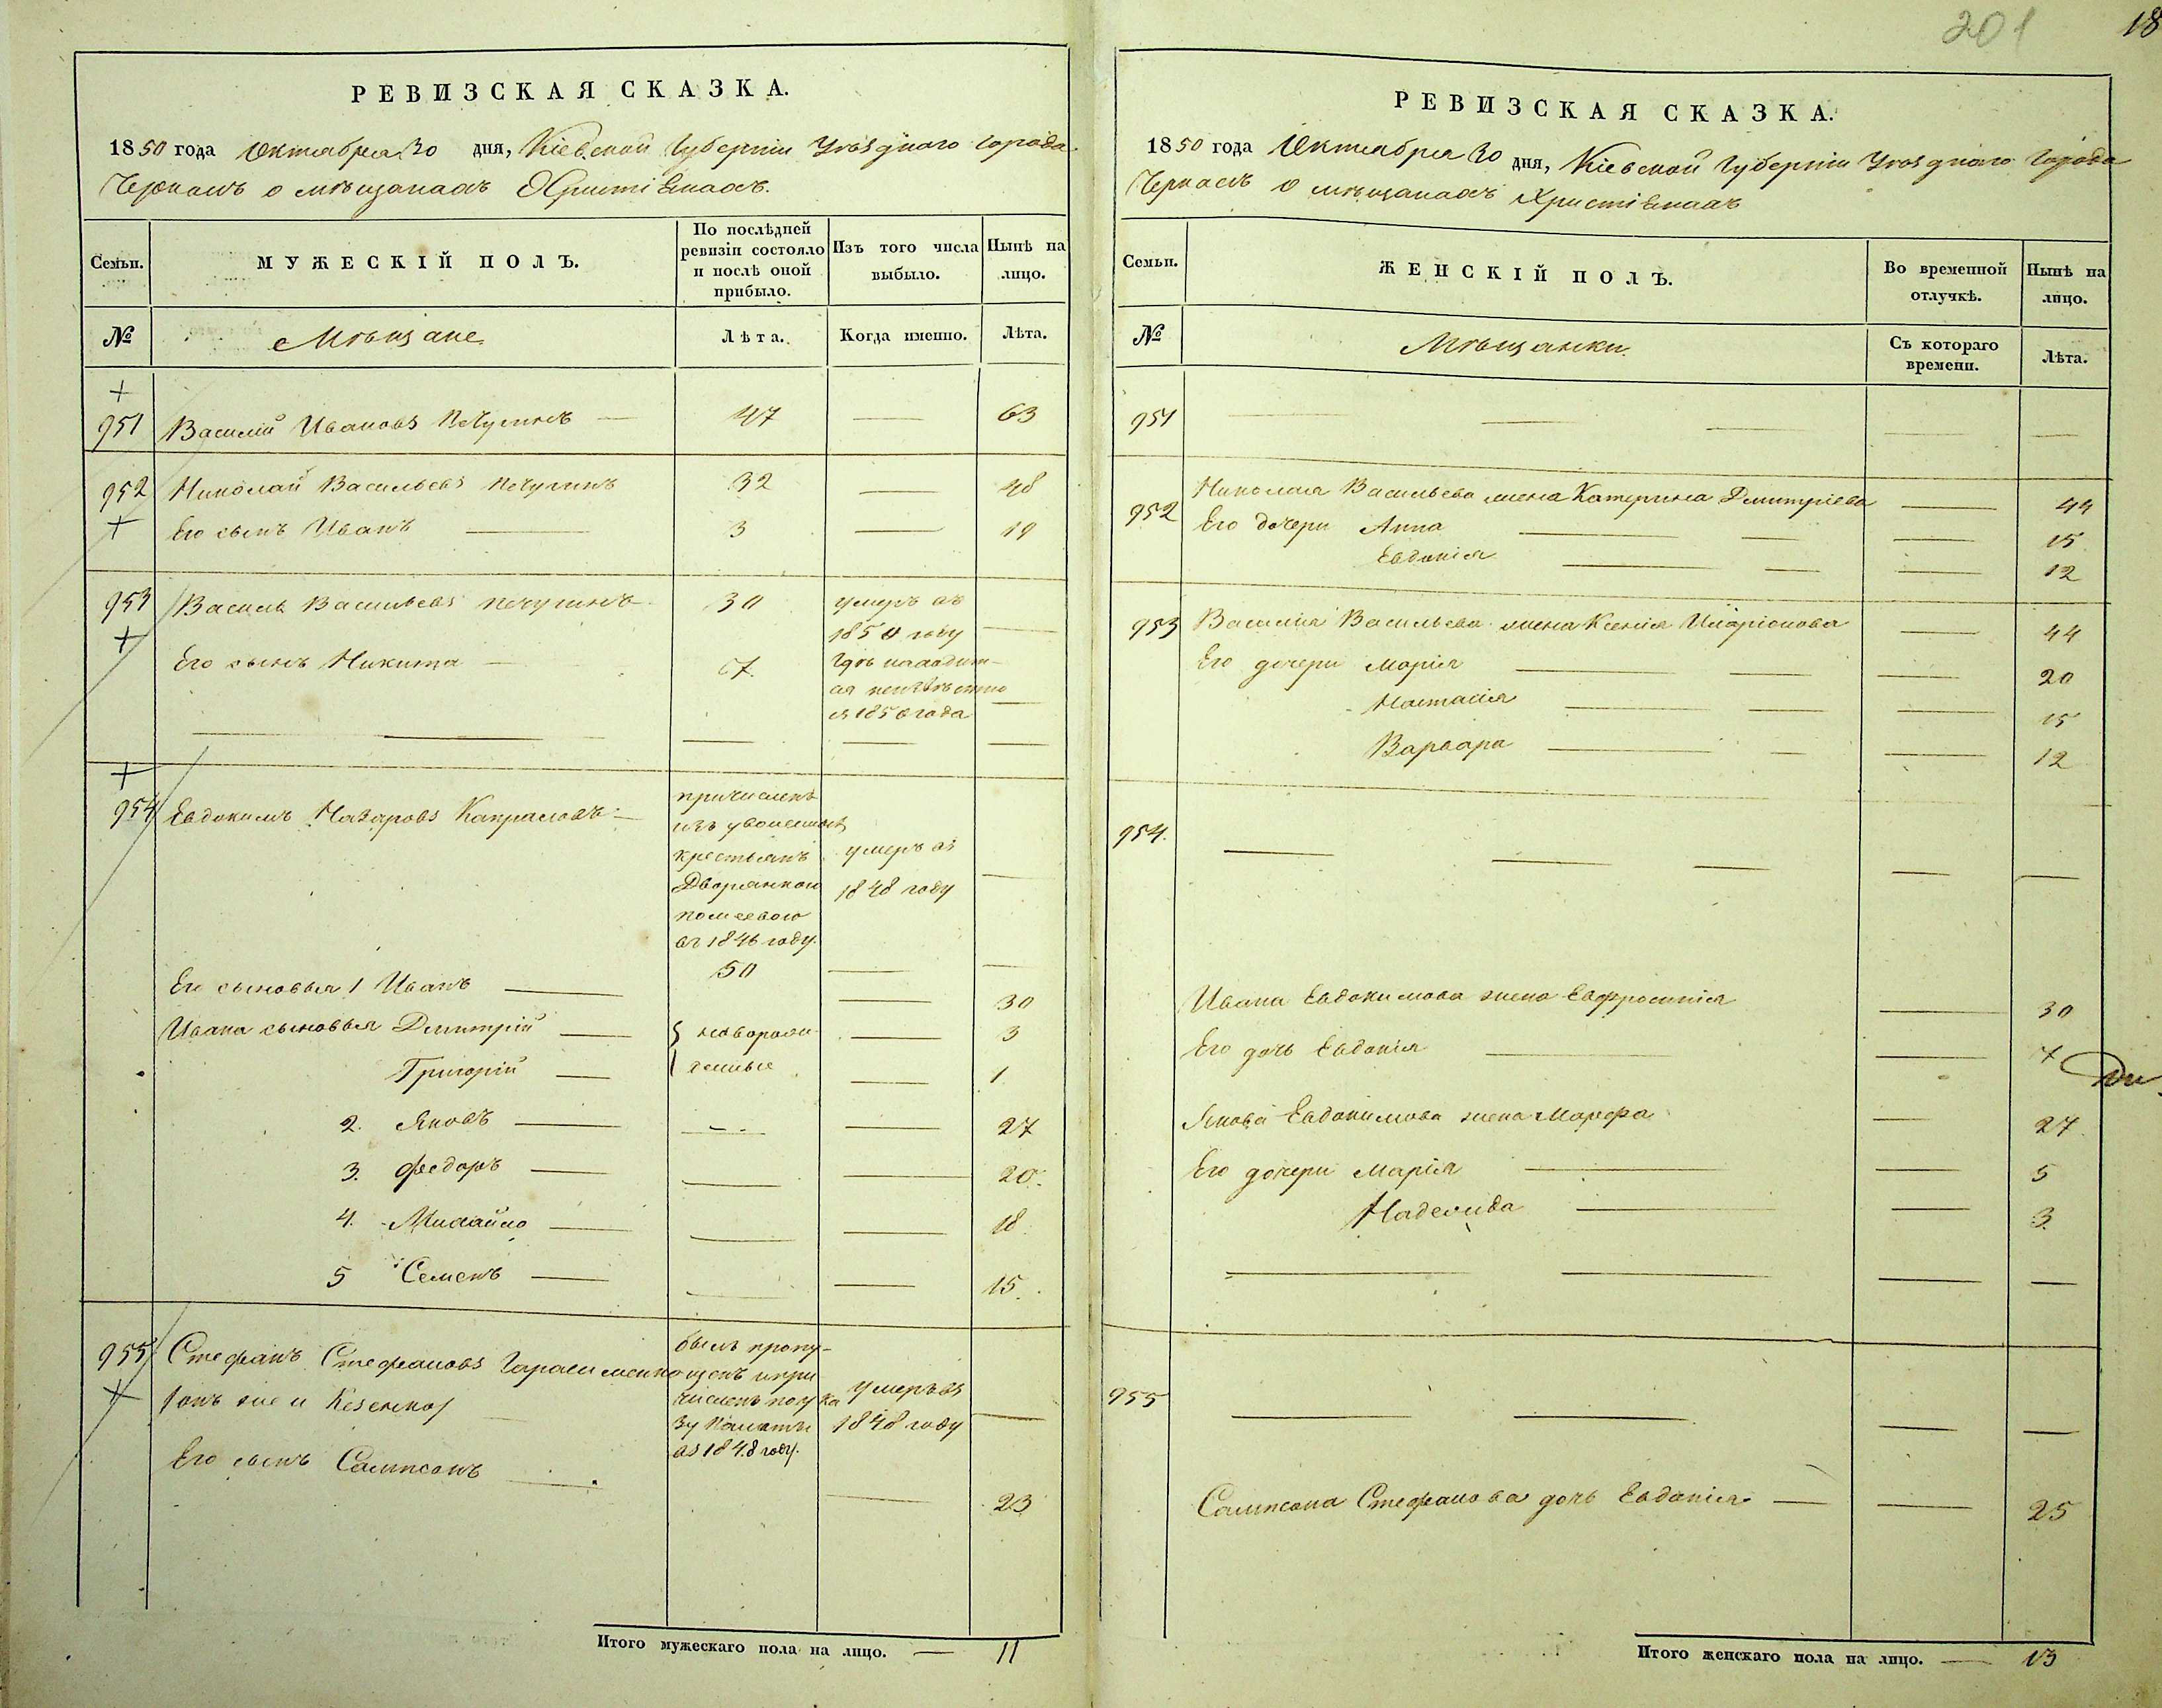 201
18
РЕВИЗСКАЯ СКАЗКА.
1850 года Октября 30 дня, Кіевской Губерніи Уѣзднаго города
Черкасъ о мѣщанахъ Христіянахъ.
Семьи.
МУЖЕСКІЙ ПОЛЪ.
По послѣдней ревизіи состояло и послѣ оной прибыло.
Изъ того числа выбыло.
Нынѣ на лицо.
№
Мѣщане
Лѣта.
Когда именно.
Лѣта.
951 Василій Ивановъ Печугинъ — 47 — 63
952 Николай Васильевъ Печугинъ 32 — 48
Его сынъ Иванъ — 3 — 19
953 Василь Васильевъ Печугинъ 30 умеръ въ
1850 году —
Его сынъ Никита — 7. Гдѣ находит-
ся неизвѣстно
съ 1850 года —
954 Евдокимъ Назаровъ — причисленъ
изъ
крестьянъ умеръ въ
Дворянкою 1848 году —
въ 1846 году.
50 — —
Его сыновья 1 Иванъ — — 30
Ивана сыновья Дмитрій — новорож — 3
Григорій — денные — 1
2. Яковъ — — — 27
3. Федоръ — — — 20.
4. Михайло — — — 18.
5 Семенъ — — — 15.
955 Стефанъ Стефановъ Гарасименко былъ пропу-
щенъ и при
онъ же и численъ по ука умеръ въ
зу Палаты 1848 году —
въ 1848 году.
Его сынъ Сампсонъ — — 23
Итого мужескаго пола на лицо. — 11
РЕВИЗСКАЯ СКАЗКА.
1850 года Октября 30 дня, Кіевской Губерніи Уѣзднаго Города
Черкасъ о мѣщанахъ Христіянахъ
Семьи.
ЖЕНСКІЙ ПОЛЪ.
Во временной отлучкѣ.
Нынѣ на лицо.
№
Мѣщанки.
Съ котораго времени.
Лѣта.
951 — — — — —
952 Николая Васильева жена Катерина Дмитріева — 44
Его дочери Анна — — — 15
Евдокія — — — 12
953 Василія Васильева жена Ксенія Иларіонова — 44
Его дочери Марія — — — 20
Настасія — — — 15
Варвара — — — 12
954. — — — — —
Ивана Евдокимова жена Евфросинія — 30
Его дочь Евдокія — — 7
Якова Евдокимова жена Марфа — 27
Его дочери Марія — — 5
Надежда — — 3.
— — — —
955 — — — —
Сампсона Стефанова дочь Евдокія — — 25
Итого женскаго пола на лицо. — 13